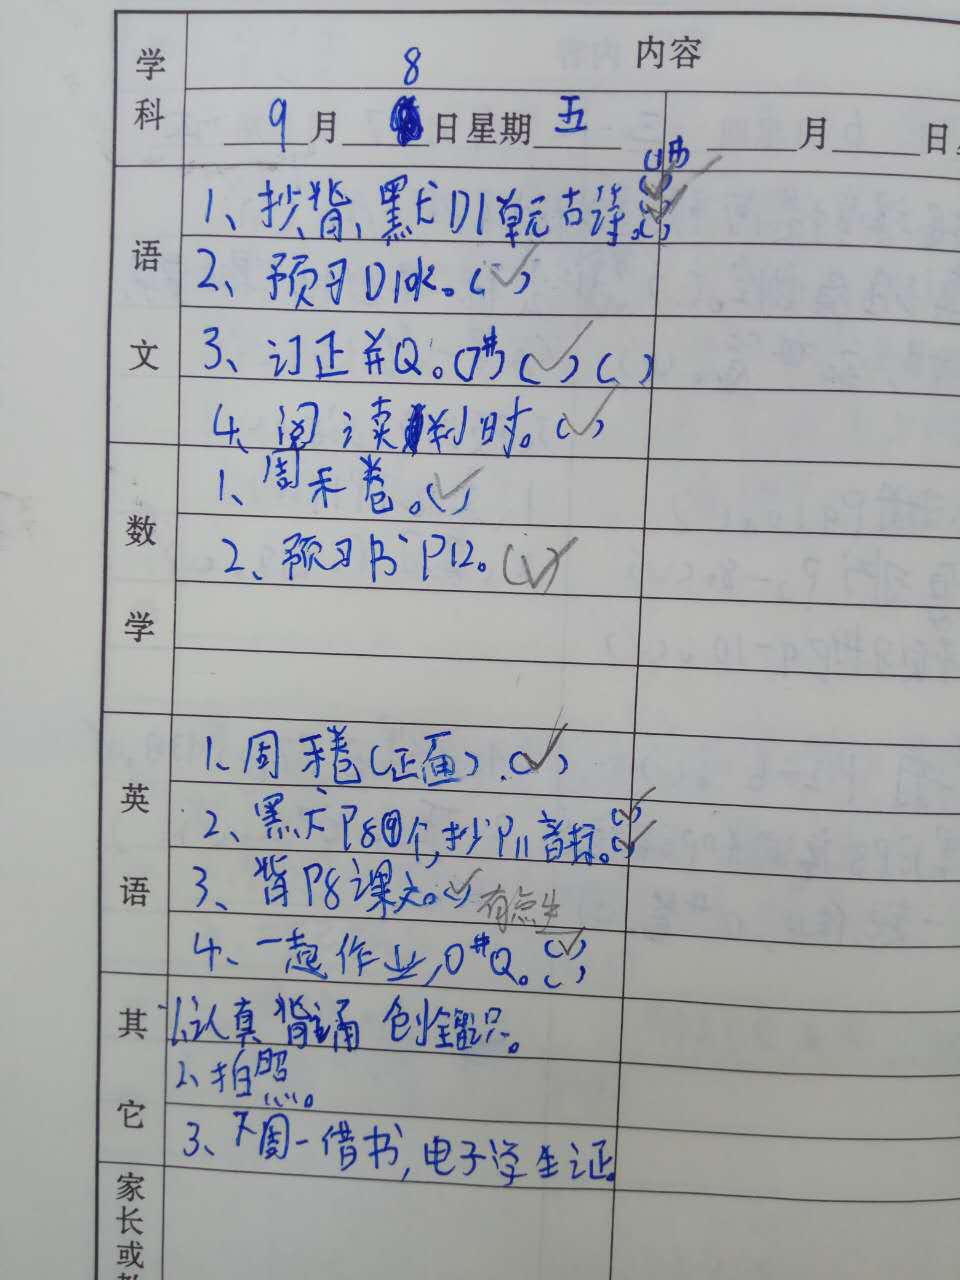 学科
内容
8
9月 日星期五
月 日
语文
1、抄、背、默大D1单元古诗。
2、预习D1k。(✓)
3、订正并Q。(✓)( )
4、阅读半小时。(✓)
数学
1、周末卷。(✓)
2、预习书P12。(✓)
英语
1、周末卷(正面).(✓)
2、默大P8④个,抄P11音标。
3、背P8课文。(✓)
4、一起作业,Q。
其它
1、认真背诵
2、拍照。
3、下周一借书,电子学生证。
家长或